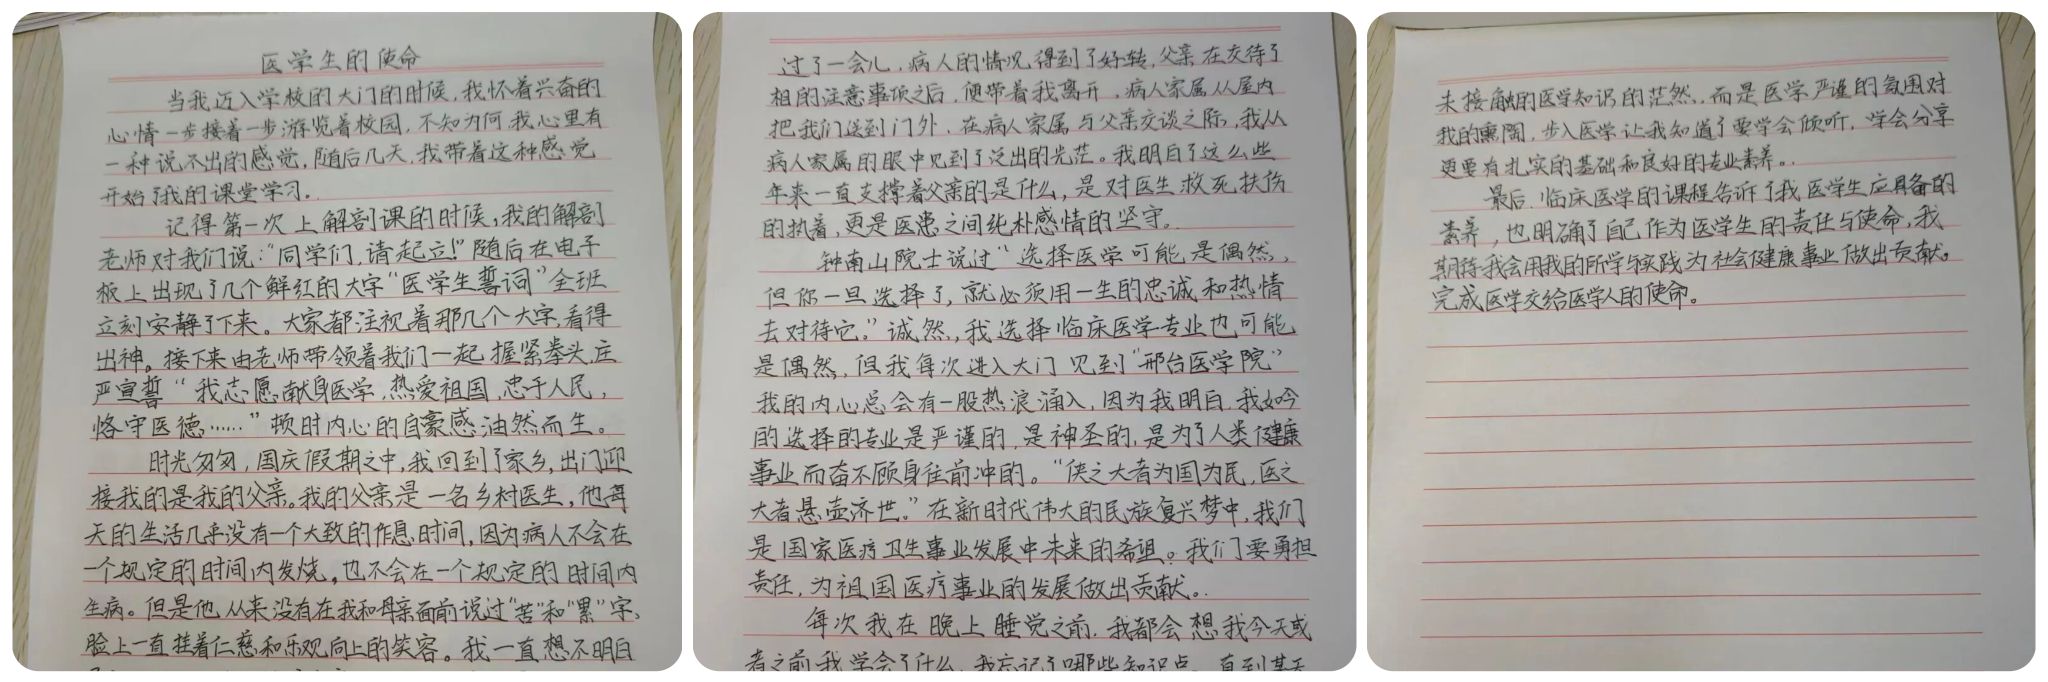 医学生的使命
当我迈入学校的大门的时候，我怀着兴奋的
心情一步接着一步游览着校园，不知为何我心里有
一种说不出的感觉，随后几天，我带着这种感觉
开始了我的课堂学习。
记得第一次上解剖课的时候，我的解剖
老师对我们说：“同学们，请起立！”随后在电子
板上出现了几个鲜红的大字“医学生誓词”全班
立刻安静了下来。大家都注视着那几个大字，看得
出神。接下来由老师带领着我们一起握紧拳头，庄
严宣誓“我志愿献身医学，热爱祖国，忠于人民，
恪守医德……”顿时内心的自豪感油然而生。
时光匆匆，国庆假期之中，我回到了家乡，出门迎
接我的是我的父亲。我的父亲是一名乡村医生，他每
天的生活几乎没有一个大致的作息时间，因为病人不会在
一个规定的时间内发烧，也不会在一个规定的时间内
生病。但是他从来没有在我和母亲面前说过“苦”和“累”字，
脸上一直挂着仁慈和乐观向上的笑容。我一直想不明白
过了一会儿，病人的情况得到了好转，父亲在交待了
相的注意事项之后，便带着我离开，病人家属从屋内
把我们送到门外，在病人家属与父亲交谈之际，我从
病人家属的眼中见到了泛出的光茫。我明白了这么些
年来一直支撑着父亲的是什么，是对医生救死扶伤
的热着，更是医患之间纯朴感情的坚守。
钟南山院士说过“选择医学可能是偶然，
但你一旦选择了，就必须用一生的忠诚和热情
去对待它。”诚然，我选择临床医学专业也可能
是偶然，但我每次进入大门见到“邢台医学院”
我的内心总会有一股热浪涌入，因为我明白，我如今
的选择的专业是严谨的，是神圣的，是为了人类健康
事业而奋不顾身往前冲的。“侠之大者为国为民，医之
大者悬壶济世。”在新时代伟大的民族复兴梦中，我们
是国家医疗卫生事业发展中未来的希望。我们要勇担
责任，为祖国医疗事业的发展做出贡献。
每次我在晚上睡觉之前，我都会想我今天或
者之前我学会了什么，我忘记了哪些知识点，直到某天
未接触的医学知识的茫然，而是医学严谨的氛围对
我的熏陶，步入医学让我知道了要学会倾听，学会分享
更要有扎实的基础和良好的专业素养。
最后，临床医学的课程告诉了我医学生应具备的
素养，也明确了自己作为医学生的责任与使命，我
期待我会用我的所学与实践为社会健康事业做出贡献。
完成医学交给医学人的使命。